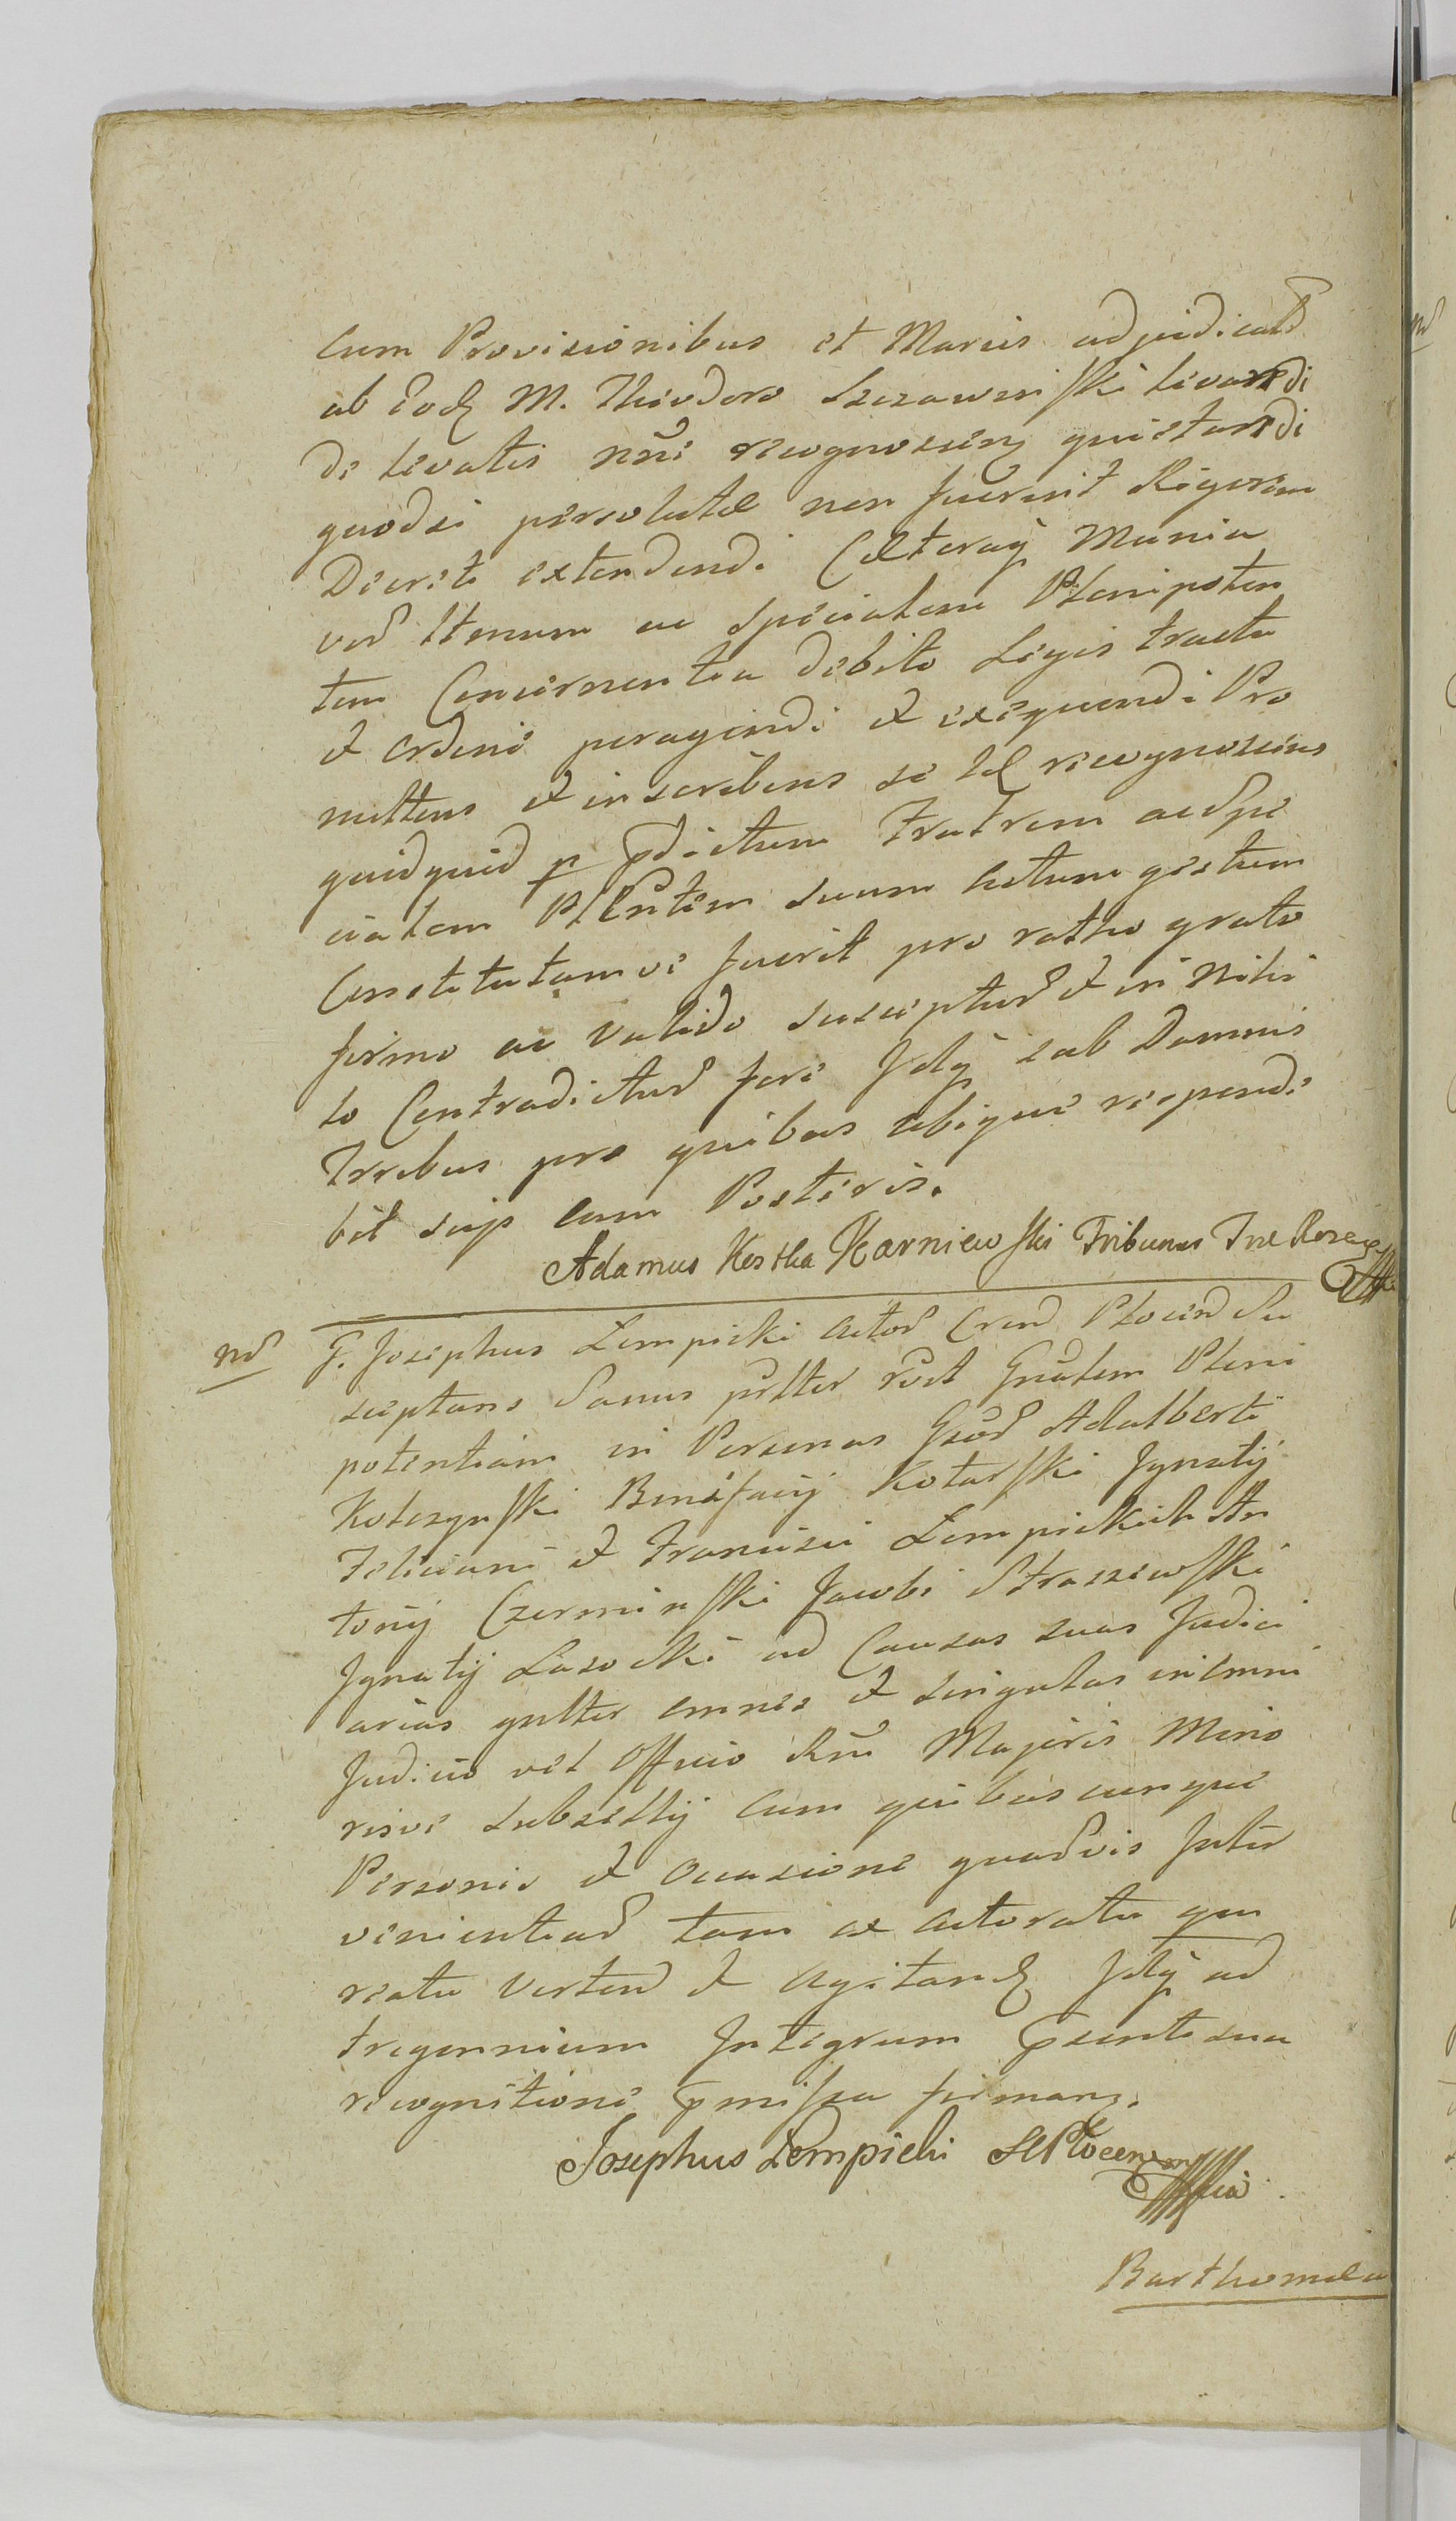 Cum Provisionibus et Marcis adjudicatd
ab Eod M. Theodoro Szczawinski levandi
de levatis nni recognoscens quietandi
quodsi persolutæ non fuerint Rigorem
Decreti extendendi Cæteraq Munia
verum ac specialem Plenipoten
tem Concernentia debito Legis tractu
et ordine peragendi et exequendi Pro
mittens et inscribens se recognoscens
quidquid p pdictum Fratrem ac spe
cialem Plentem suum actum gestum
Constitutumve fuerit pro ratho grato
firmo ac valido suscepturd et in Nihi
lo Contradicturd fore Idq sub Damnis
Terribus pro quibus ubique responde
bit suis cum Posteris.
Adamus Kostka Karniewski Tribunus Træ Rozen
nd G. Josephus Lempicki actord Crend Plocend Su
sceptans Sanus pltter rt Gnalem Pleni
potentiam in Personas Gsord Adalberti
Kolczynski Benefacij Kotarski Ignatij
Feliciani et Francisci Lempickich An
tonij Czerminski Jacobi Straszewski
Ignatij Lasocki ad Causas suas Judici
arias gnltter omnes et singulas in omni
Judicio vel Officio Rni Majoris Mino
risve Subsellij Cum quibuscunque
Personis et occasione quadvis Inter
venientiad tam ex actoratu qm
reatu vertend et agitand Idq ad
tregennium Integrum psenti sua
recognitione pmissa firmans.
Josephus Lempicki SCPlocen
Barthomela